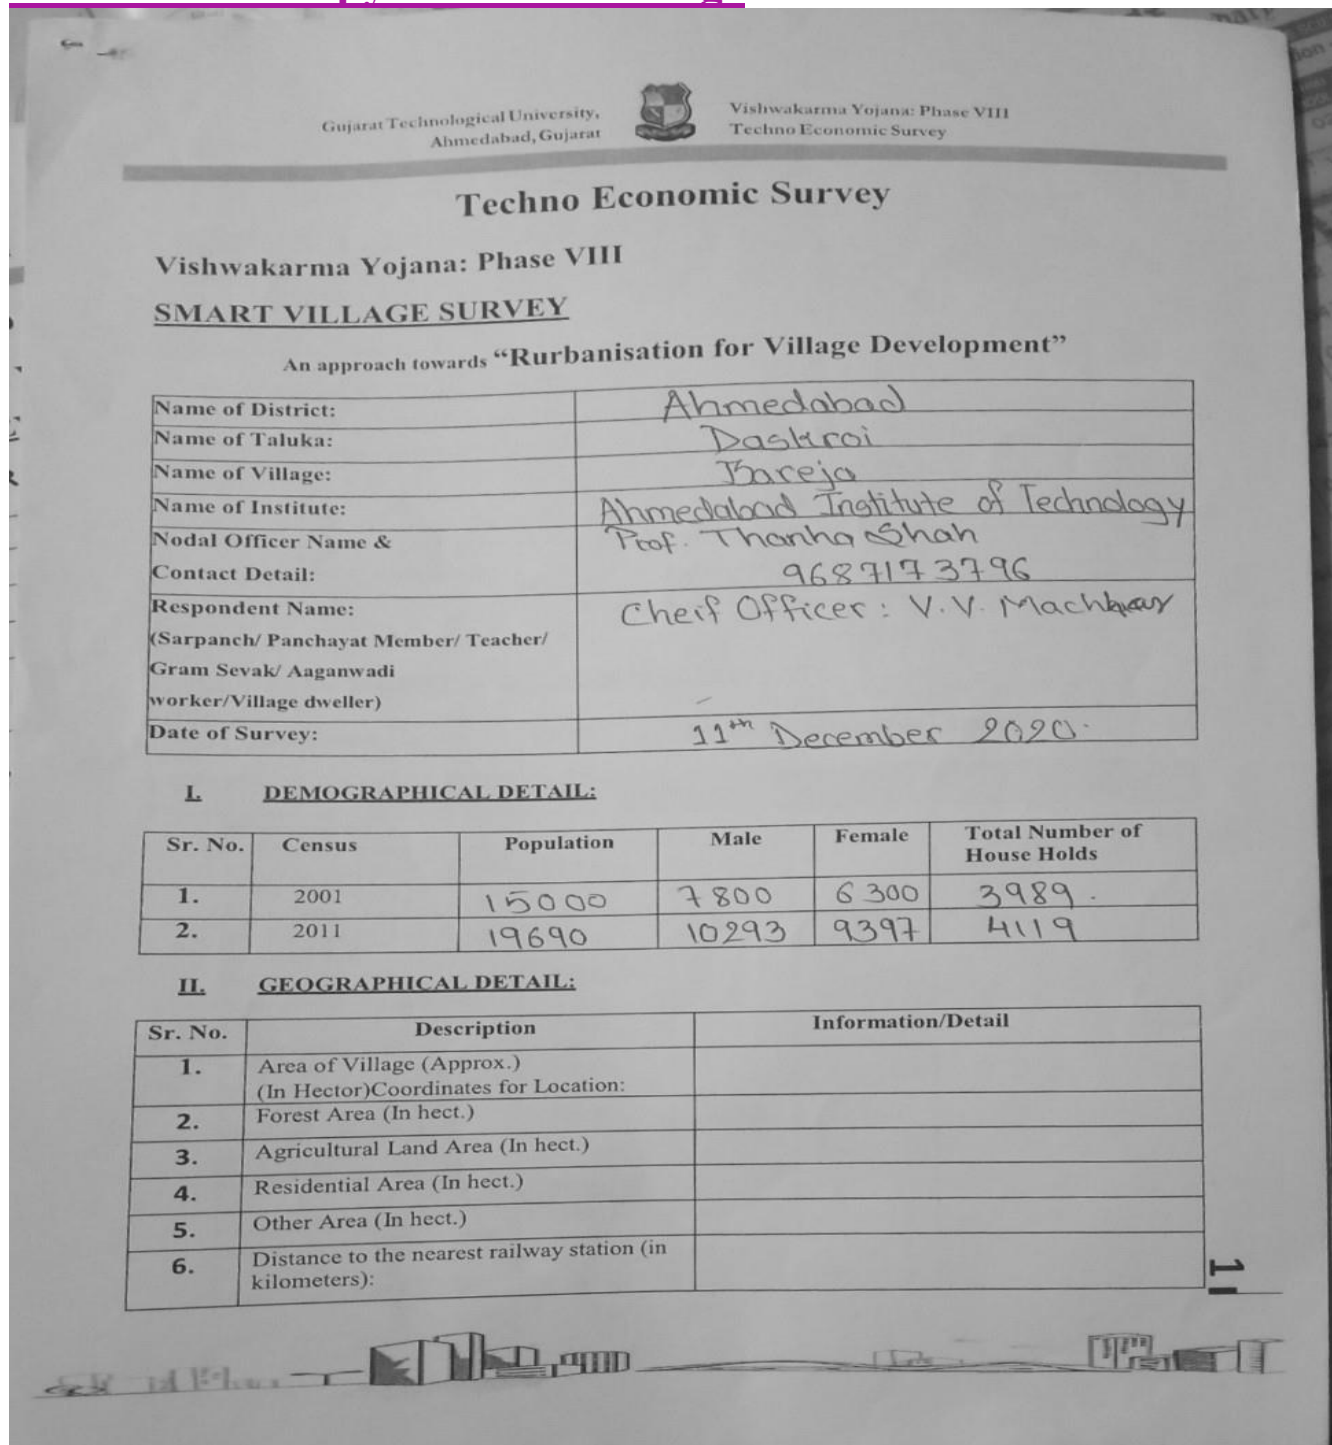 Gujarat Technological University,
Ahmedabad, Gujarat
Vishwakarma Yojana: Phase VIII
Techno Economic Survey
Techno Economic Survey
Vishwakarma Yojana: Phase VIII
SMART VILLAGE SURVEY
An approach towards “Rurbanisation for Village Development”
Name of District: Ahmedabad
Name of Taluka: Daskroi
Name of Village: Bareja
Name of Institute: Ahmedabad Institute of Technology
Nodal Officer Name & Prof. Thanha Shah
Contact Detail: 9687173796
Respondent Name: Cheif Officer: V. V. Machhar
(Sarpanch/ Panchayat Member/ Teacher/
Gram Sevak/ Aaganwadi
worker/Village dweller)
Date of Survey: 11th December 2020.
I. DEMOGRAPHICAL DETAIL:
Sr. No. Census Population Male Female Total Number of
House Holds
1. 2001 15000 7800 6300 3989.
2. 2011 19690 10293 9397 4119
II. GEOGRAPHICAL DETAIL:
Sr. No. Description Information/Detail
1. Area of Village (Approx.)
(In Hector)Coordinates for Location:
2. Forest Area (In hect.)
3. Agricultural Land Area (In hect.)
4. Residential Area (In hect.)
5. Other Area (In hect.)
6. Distance to the nearest railway station (in
kilometers):
1